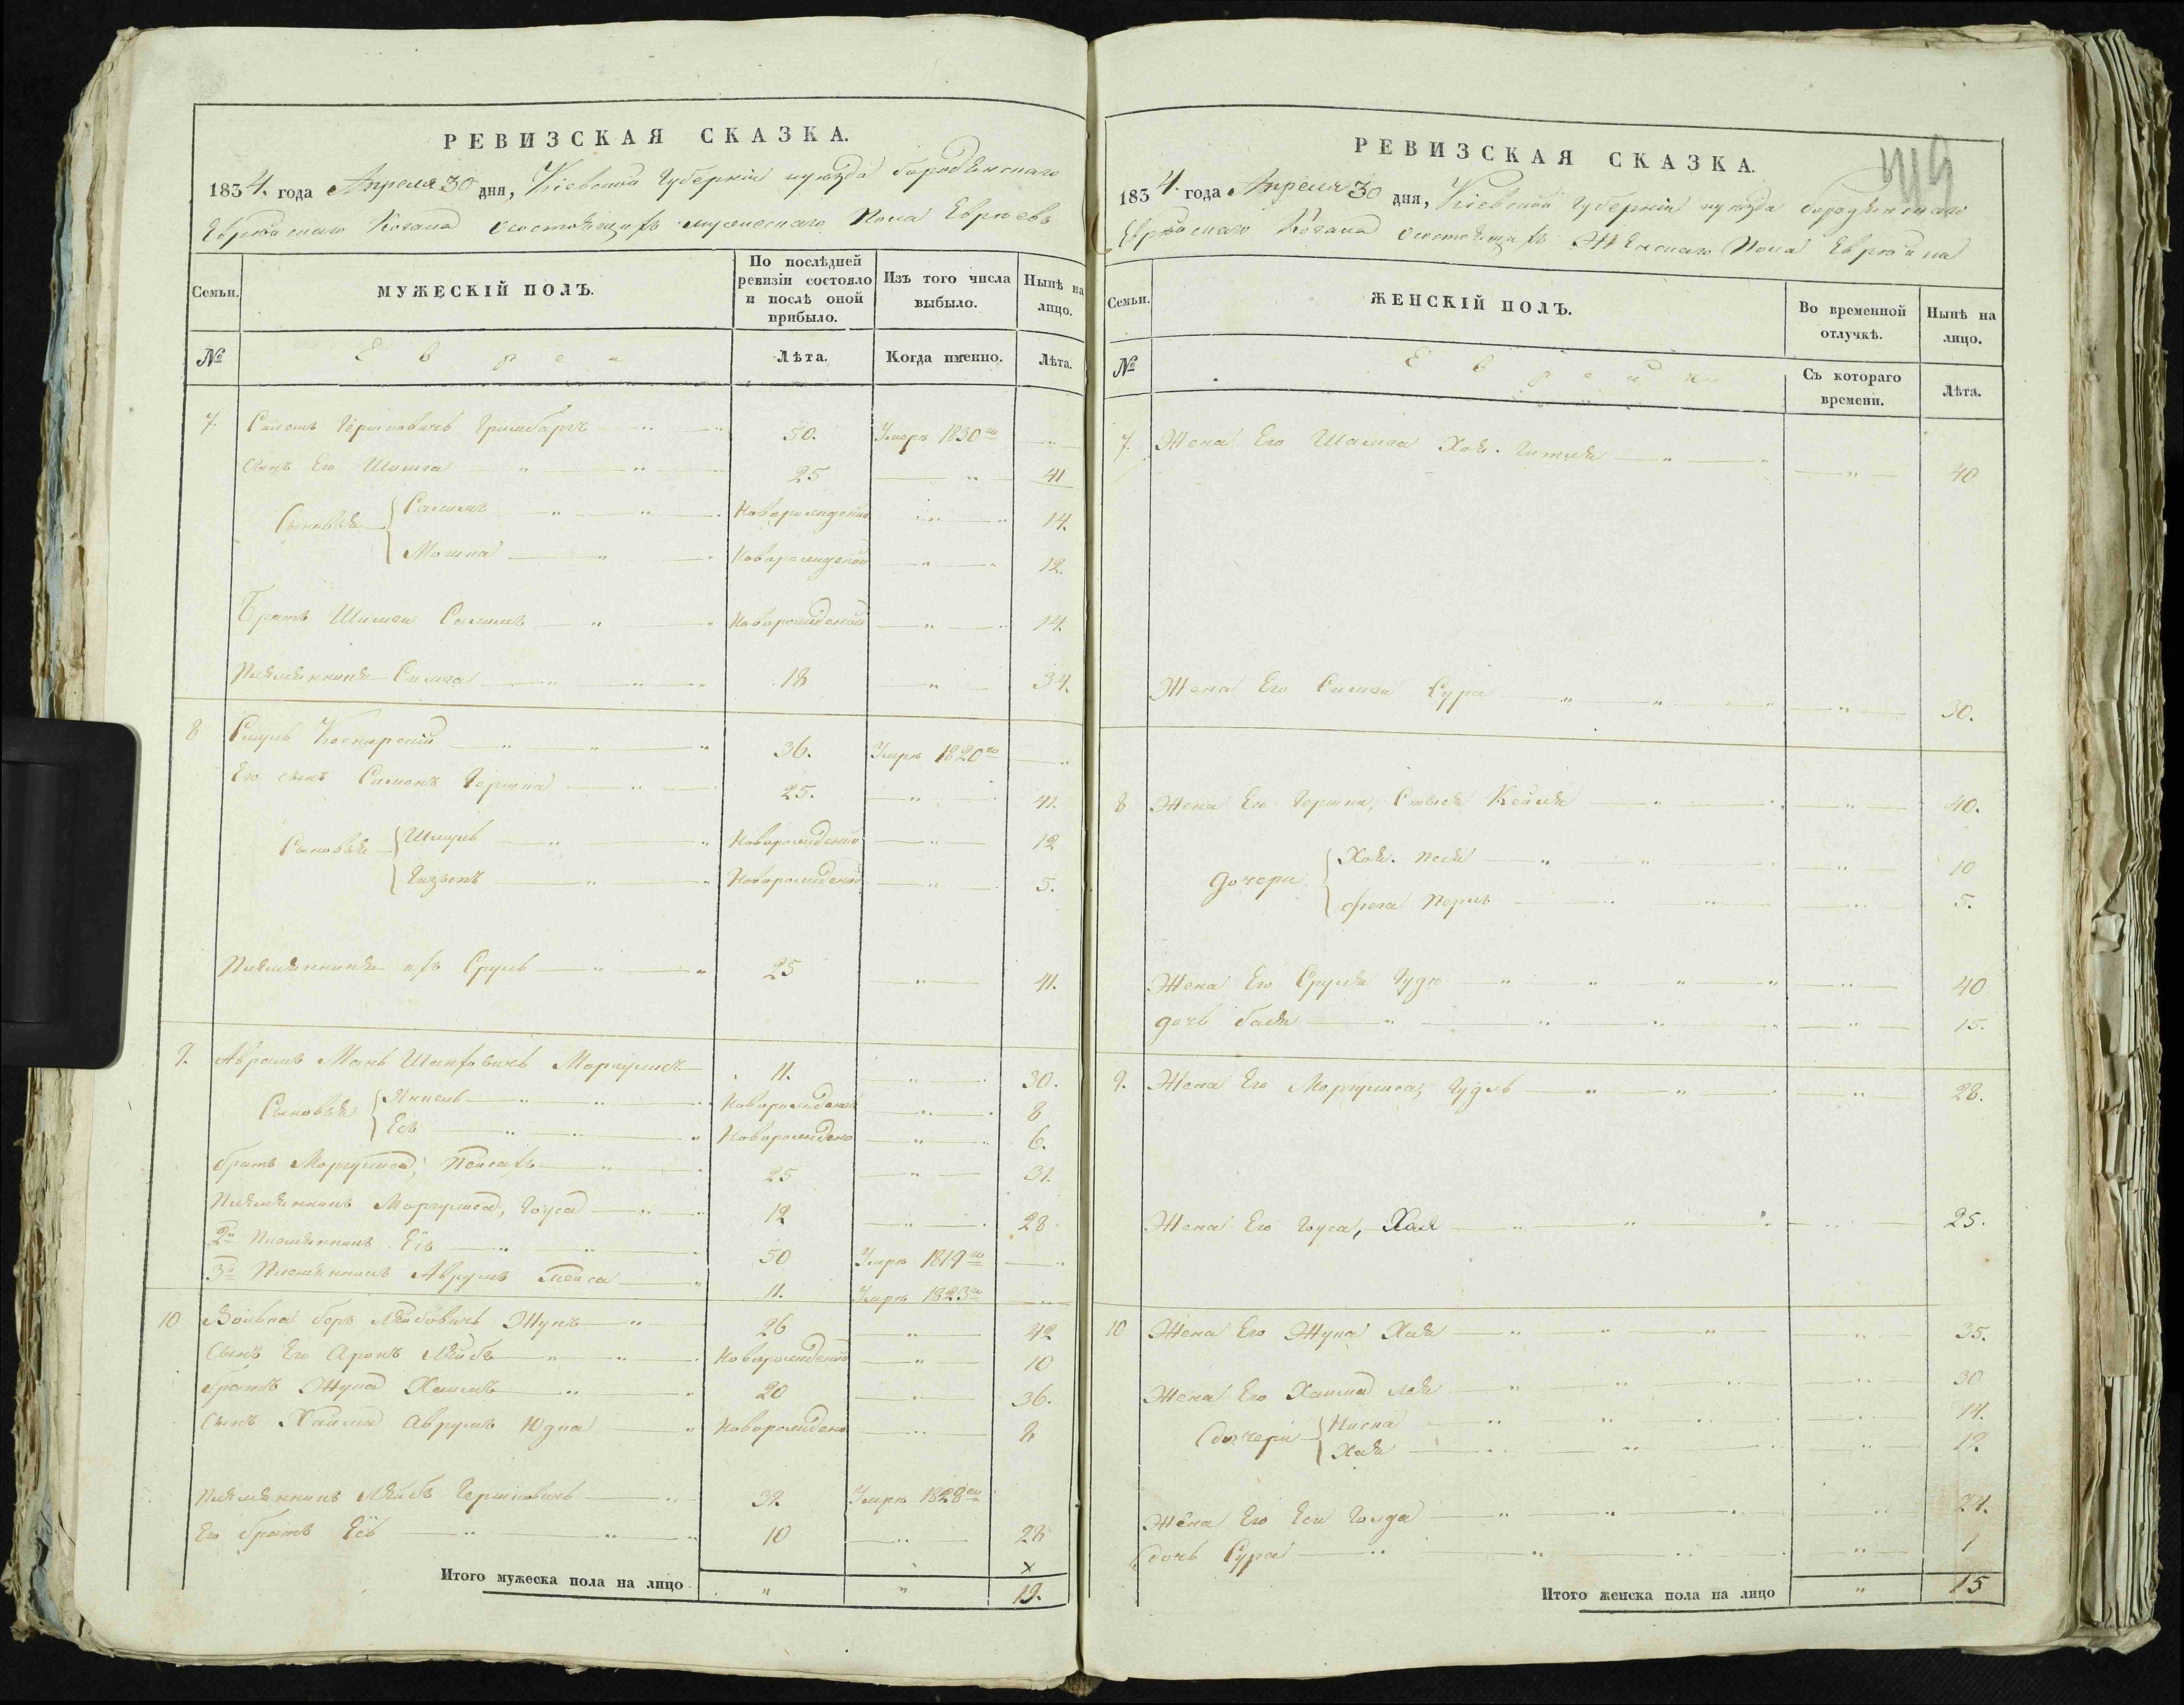 РЕВИЗСКАЯ СКАЗКА.
1834. года Апреля 30 дня, Кіевской Губерніи уезда бородянскаго
Еврейскаго Кагала осостоящихъ мужескаго Пола Евреевъ
Семьи.
МУЖЕСКІЙ ПОЛЪ.
По послѣдней ревизіи состояло и послѣ оной прибыло.
Изъ того числа выбыло.
Нынѣ на лицо.
№
Евреи
Лѣта.
Когда именно.
Лѣта.
7. Гершковичь 50. Умеръ 1830го
Сынъ Его Шимха 25 41
Сыновья Новорожденый 14.
Мошка Новорожденой 12.
Братъ Шимхи Новорожденой 14.
Симха 18 34.
8 Умре 1820го 36.
Его сынъ Симонъ Гершка 25. 41.
Сыновья Шмуль Новорожденой 12
Новорожденой 5.
ихъ Сруль 25 41.
9. Аврамъ 11. 30.
Сыновья Янкель Новорожденой 8
Есь Новорождено 6.
братъ Моргулиса, Пейсахъ 25 31.
Племянникъ Моргулиса, 12 28
2й Племянникъ Есь 50 Умре 1819го
3й Племянникъ Аврумъ 11. Умре 1823го
10 Волька беръ Лейбовичь Жукъ 26 42
Сынъ Его Аронъ Лейбъ Новорожденой 10
братъ Жука Хаимъ 20 36.
Сынъ Хаима Аврумъ Юдка Новорождено 8
Племянникъ Лейбъ Гершковичь 32. Умре 1828го
Его братъ Есь 10 26
Итого мужеска пола на лицо " " 19.
РЕВИЗСКАЯ СКАЗКА.
1834. года Апреля 30 дня, Кіевской Губерніи уезда бородянскаго
Еврейскаго Кагала осостоящихъ Женскаго Пола Еврейка
Семьи.
ЖЕНСКІЙ ПОЛЪ.
Во временной отлучкѣ.
Нынѣ на лицо.
№
Еврейки
Съ котораго времени.
Лѣта.
7. Жена Его Шимха Хая. Гитля 40
Жена Его Симхи Сура 30.
8 Жена Его Гершка, Кейля 40.
Дочери Хая. Песя 10
Перль 5.
Жена Его Сруля 40
дочь бася 15.
9. Жена Его Моргулиса, Гудль 28.
Жена Его Хая 25.
10 Жена Его Жука Хая 35.
Жена Его Хаима Лея 30
дочери 14.
Хая 12
Жена Его Еси Голда 24.
дочь Сура 1
Итого женска пола на лицо " 15